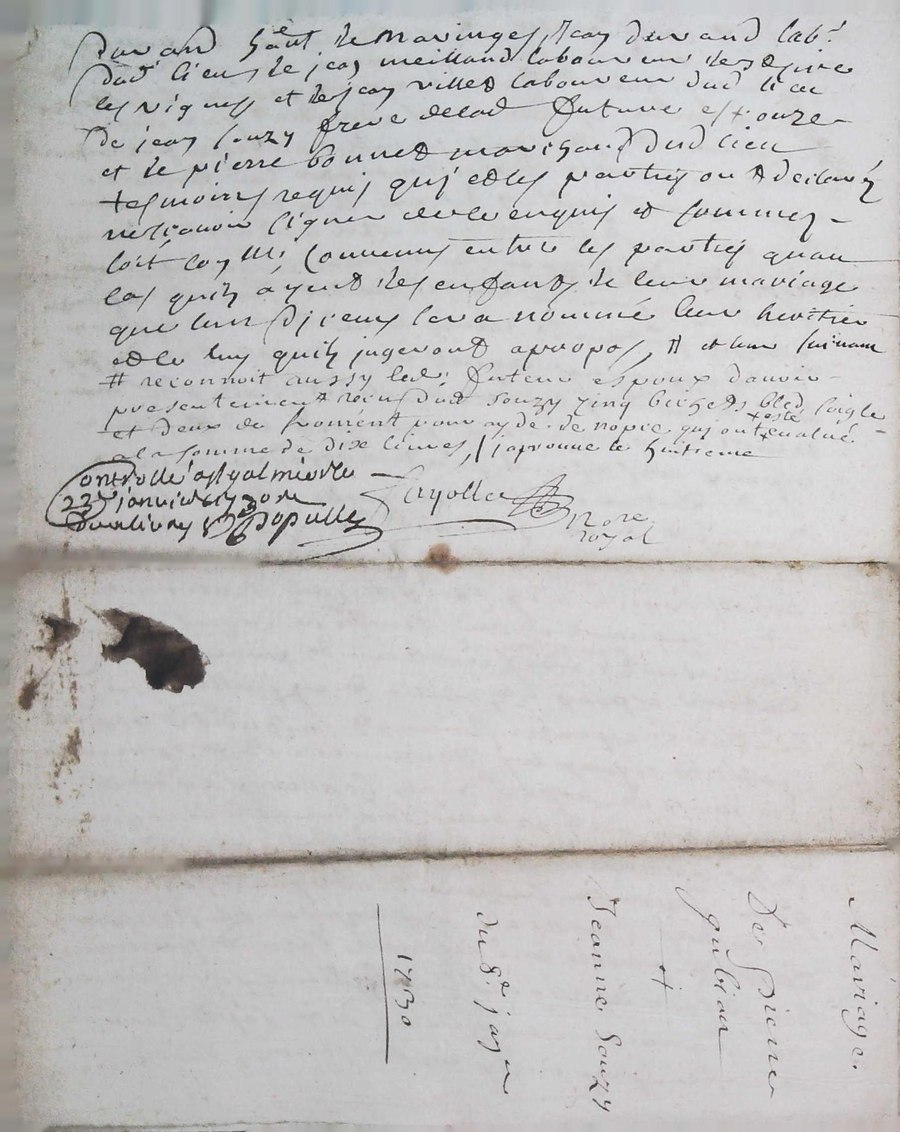 Durand hant de Maringes, Jean Durand lab.r
dud lieu de jean meilland laboureur de
les vignes et de jean villed laboureur dud lieu
De jean souzy frere delad future espouze
et de pierre bonned marchand dud lieu
tesmoins requis qui et les parties ont declaré
ne scavoir signer de ce enquis et sommez
soit convenus entre les parties quau
cas quils ayent des enfants de leur mariage
que lun diceux sera nommé leur heritier
celluy quils jugeront apropos, # et leur
# reconnoit aussy led. futeur espoux davoir
presentement recu dud souzy cinq bichets bled soigle
et deux de froment pour ayde de nopce qui ont esté evalué
a la somme de dix livres, / japrouue le huitieme
Controllé a St galmier le
22e janvier 1730
Douze livres Populle
No.re
royal
Mariage.
De Pierre
gubian
+
Jeanne Souzy
du 8.e janr
1730